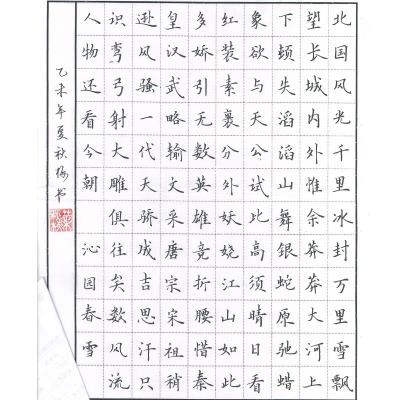 北国风光千里冰封万里雪飘
望长城内外惟余莽莽大河上
下顿失滔滔山舞银蛇原驰蜡
象欲与天公试比高须晴日看
红装素裹分外妖娆江山如此
多娇引无数英雄竞折腰惜秦
皇汉武略输文采唐宗宋祖稍
逊风骚一代天骄成吉思汗只
识弯弓射大雕俱往矣数风流
人物还看今朝 沁园春雪
乙未年夏秋书